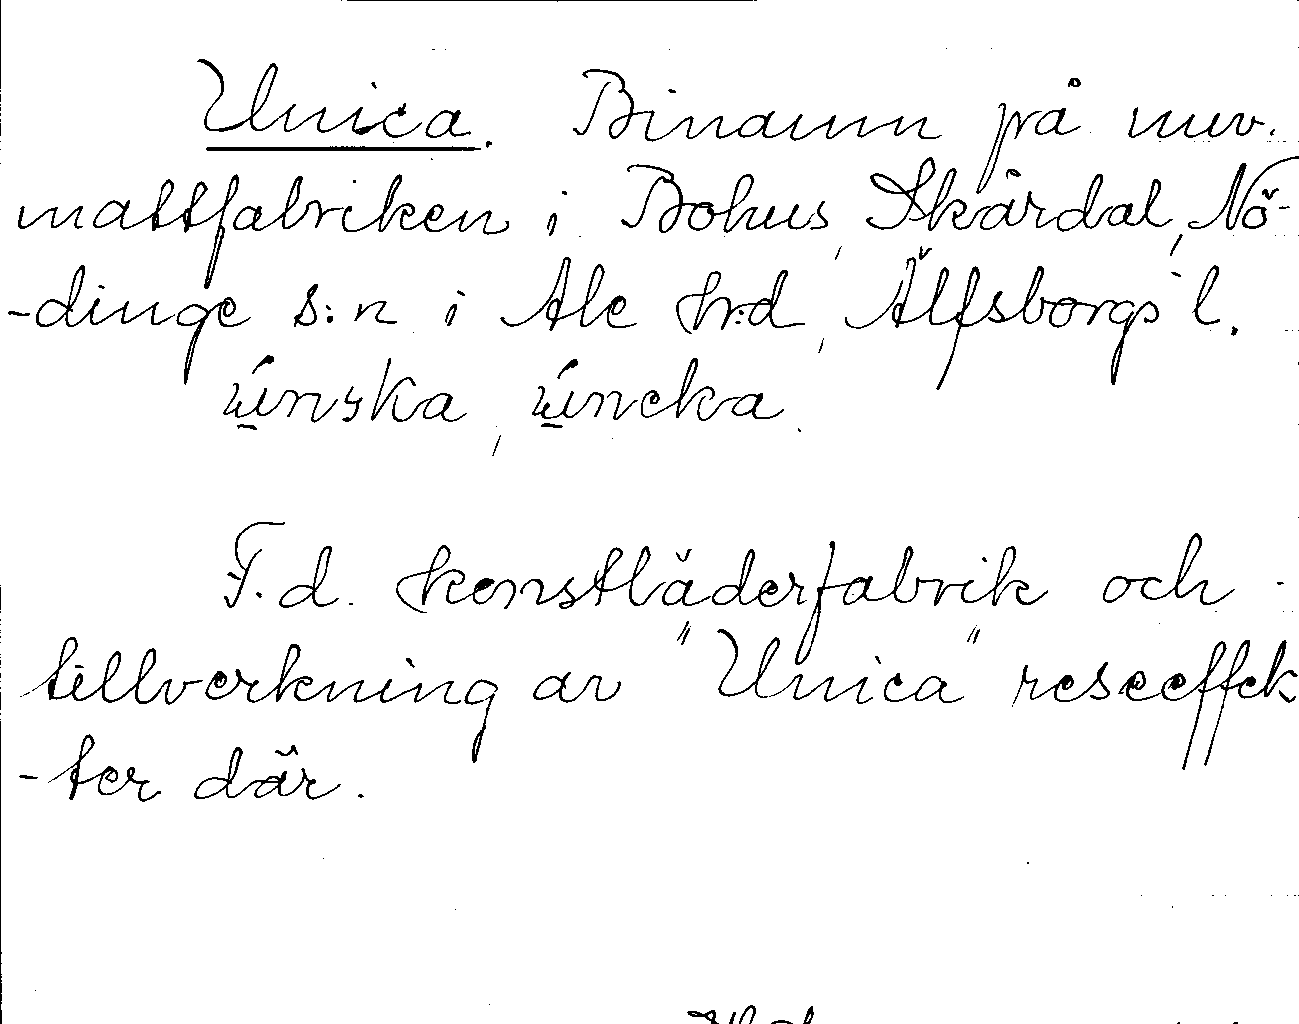 Unica. Binamn på nuv.
mattfabriken i Bohus, Skårdal, Nö-
-dinge s:n i Ale hrd, Älfsborgs l.
únska, úncka.
F.d. konstläderfabrik och
tillverkning av "Unica" reseeffek
-ter där.